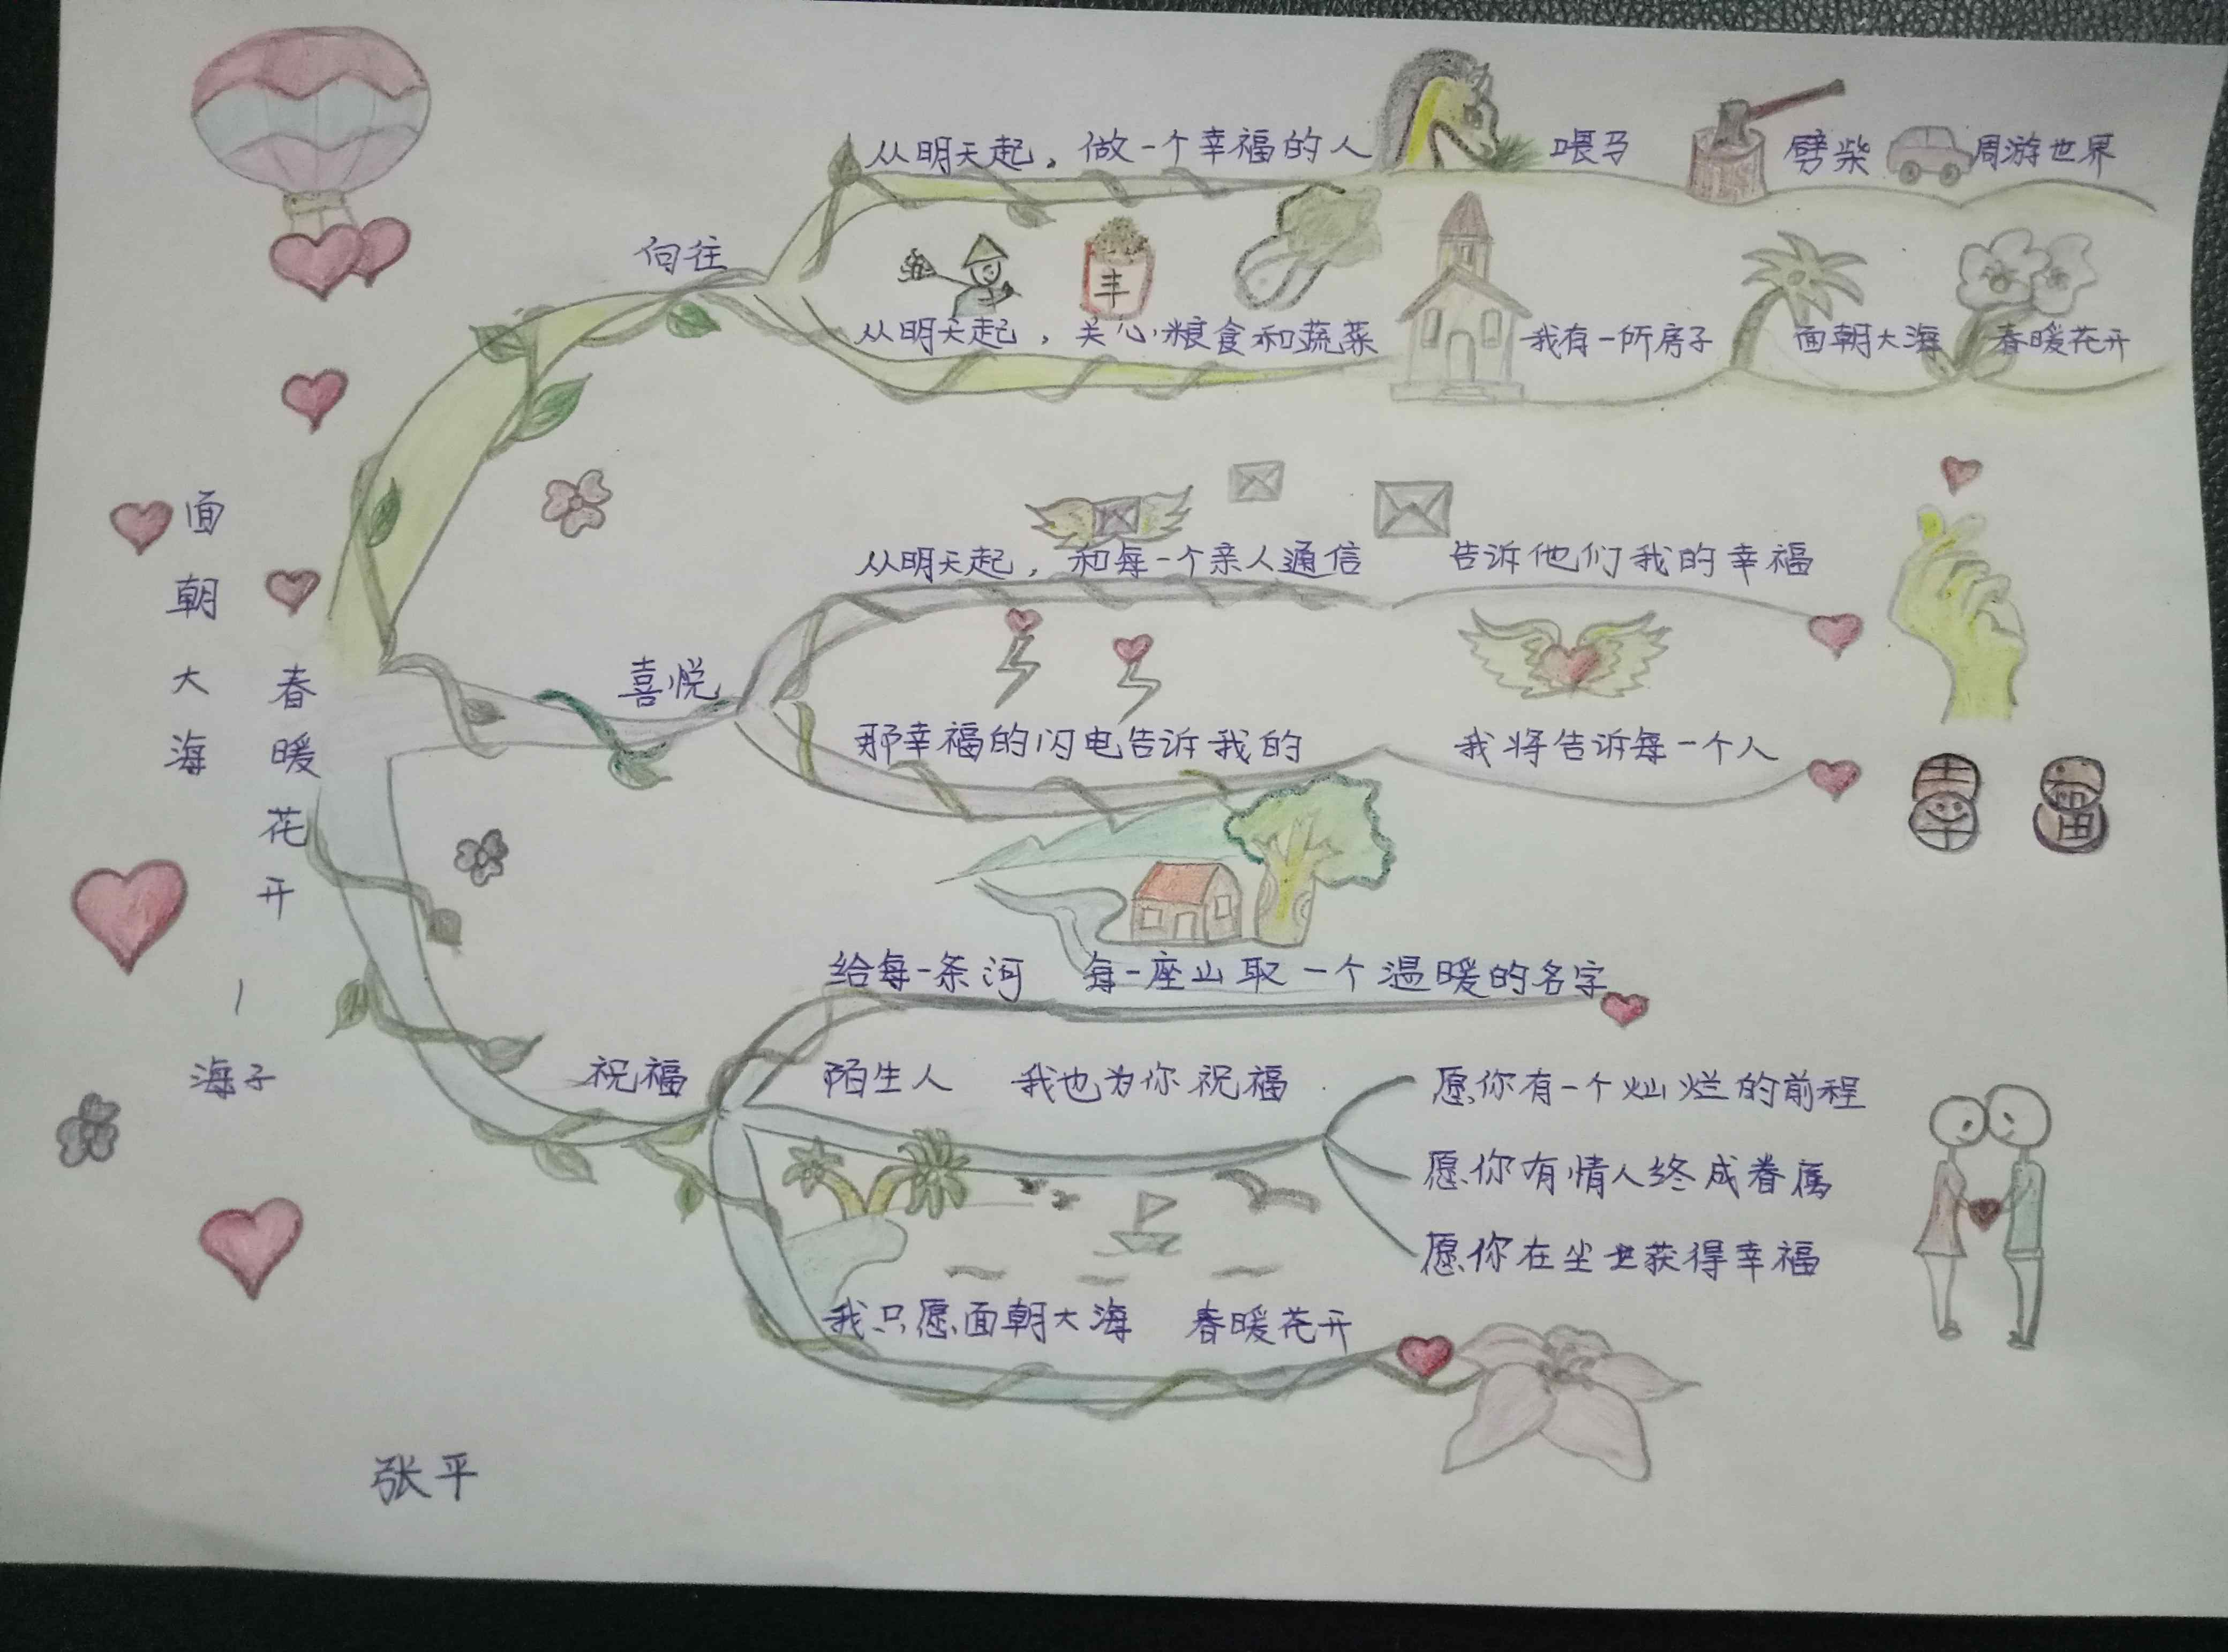 面朝大海
春暖花开
—海子
向往
从明天起，做一个幸福的人 喂马 劈柴 周游世界
丰
从明天起，关心粮食和蔬菜 我有一所房子 面朝大海 春暖花开
喜悦
从明天起，和每一个亲人通信 告诉他们我的幸福
那幸福的闪电告诉我的 我将告诉每一个人
幸福
祝福
给每一条河 每一座山取一个温暖的名字
陌生人 我也为你祝福
愿你有一个灿烂的前程
愿你有情人终成眷属
愿你在尘世获得幸福
我只愿面朝大海 春暖花开
张平